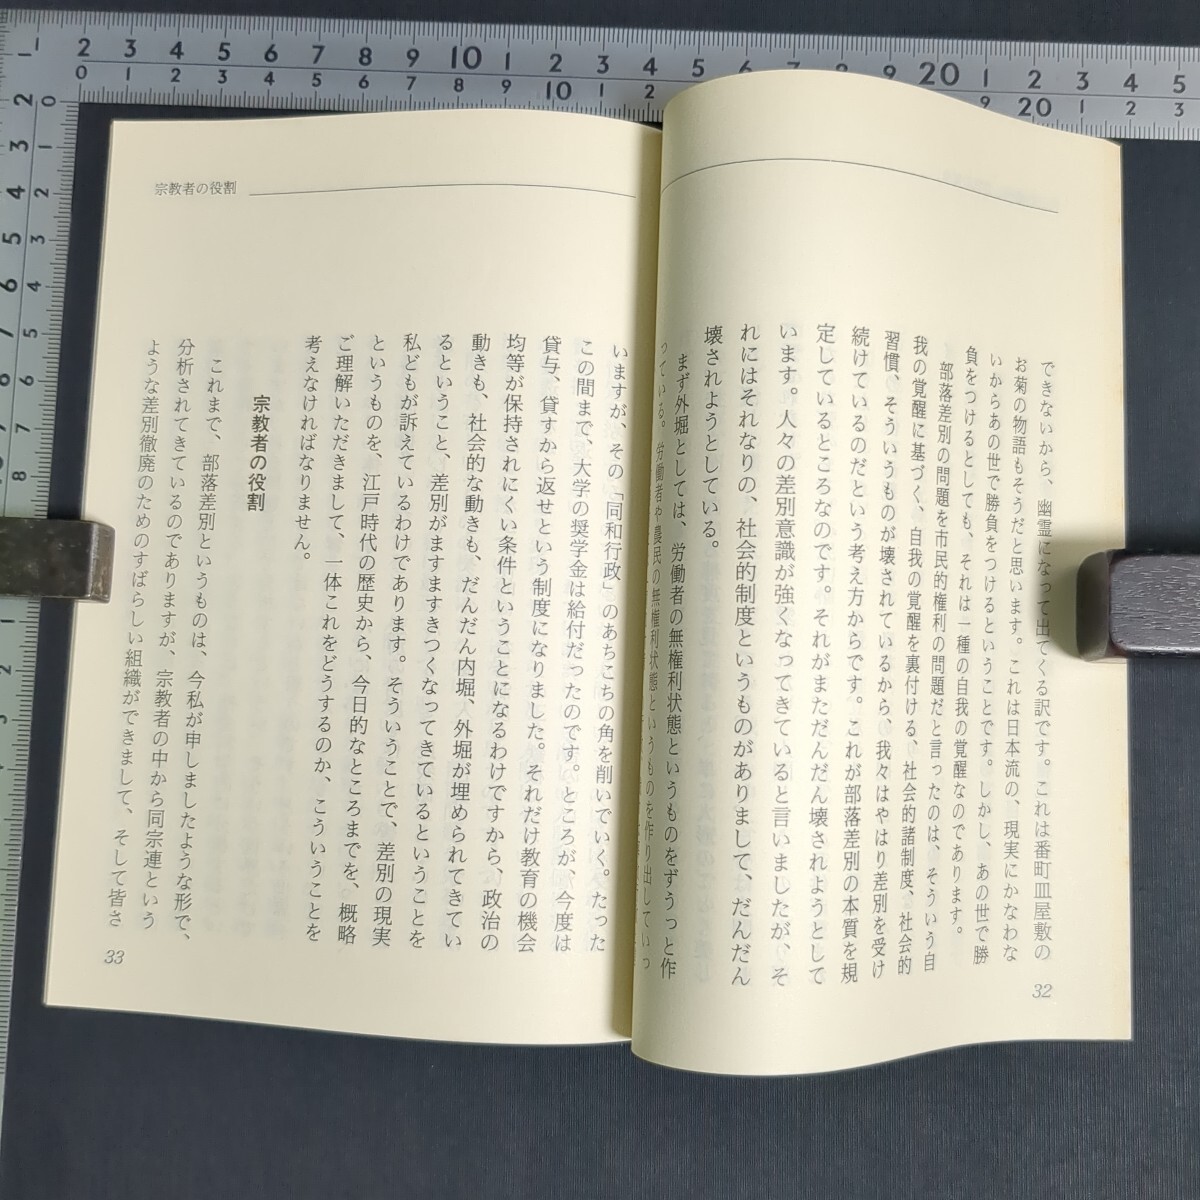 できないから、幽霊になって出てくる訳です。これは番町皿屋敷の
お菊の物語もそうだと思います。これは日本流の、現実にかなわな
いからあの世で勝負をつけるということです。しかし、あの世で勝
負をつけるとしても、それは一種の自我の覚醒なのであります。
部落差別の問題を市民的権利の問題だと言ったのは、そういう自
我の覚醒に基づく、自我の覚醒を裏付ける、社会的諸制度、社会的
習慣、そういうものが壊されているから、我々はやはり差別を受け
続けているのだという考え方からです。これが部落差別の本質を規
定しているところなのです。それがまただんだん壊されようとして
います。人々の差別意識が強くなってきていると言いましたが、そ
れにはそれなりの、社会的制度というものがありまして、だんだん
壊されようとしている。
まず外堀としては、労働者の無権利状態というものをずうっと作
っている。労働者や農民の無権利状態というものを作り出していっ
32
宗教者の役割
いますが、その「同和行政」のあちこちの角を削いでいく。たった
この間まで、大学の奨学金は給付だったのです。ところが、今度は
貸与、貸すから返せという制度になりました。それだけ教育の機会
均等が保持されにくい条件ということになるわけですから、政治の
動きも、社会的な動きも、だんだん内堀、外堀が埋められてきてい
るということ、差別がますますきつくなってきているということを
私どもが訴えているわけであります。そういうことで、差別の現実
というものを、江戸時代の歴史から、今日的なところまでを、概略
ご理解いただきまして、一体これをどうするのか、こういうことを
考えなければなりません。
宗教者の役割
これまで、部落差別というものは、今私が申しましたような形で、
分析されてきているのでありますが、宗教者の中から同宗連という
ような差別徹廃のためのすばらしい組織ができまして、そして皆さ
33